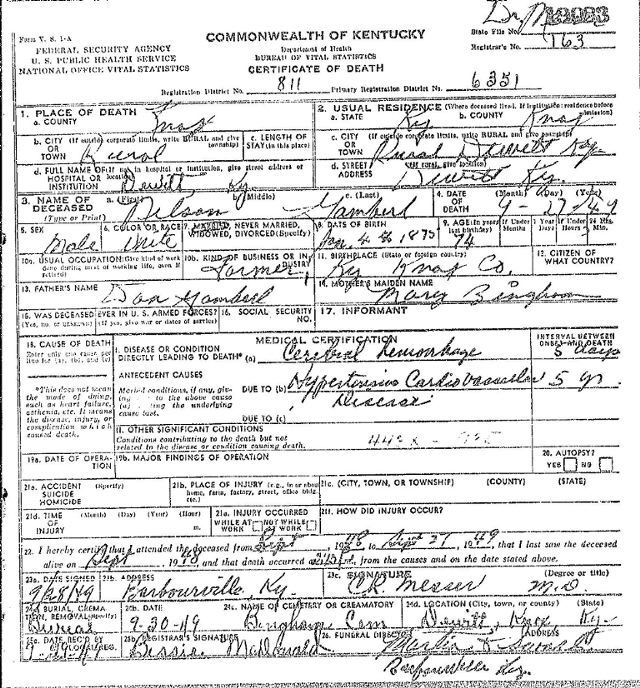 Form V. S. 1-A
FEDERAL SECURITY AGENCY
U. S. PUBLIC HEALTH SERVICE
NATIONAL OFFICE VITAL STATISTICS
COMMONWEALTH OF KENTUCKY
Department of Health
BUREAU OF VITAL STATISTICS
CERTIFICATE OF DEATH
State File No.
Registrar's No. 163
Registration District No. 811 Primary Registration District No. 6351
1. PLACE OF DEATH
a. COUNTY Knox
2. USUAL RESIDENCE (Where deceased lived. If institution: residence before admission)
a. STATE Ky b. COUNTY Knox
b. CITY (If outside corporate limits, write RURAL and give township) OR TOWN Rural
c. LENGTH OF STAY (in this place)
c. CITY (If outside corporate limits, write RURAL and give township) OR TOWN Rural Dewitt Ky
d. FULL NAME OF (If not in hospital or institution, give street address or location) HOSPITAL OR INSTITUTION Dewitt Ky.
d. STREET (If rural, give location) ADDRESS Dewitt Ky
3. NAME OF DECEASED (Type or Print)
a. (First) Nelson b. (Middle) c. (Last)
4. DATE OF DEATH (Month) (Day) (Year) 9-27-49
5. SEX Male
6. COLOR OR RACE White
7. MARRIED, NEVER MARRIED, WIDOWED, DIVORCED (Specify)
8. DATE OF BIRTH 1875
9. AGE (In years last birthday) 74 If Under 1 Year If Under 24 Hrs.
10a. USUAL OCCUPATION (Give kind of work done during most of working life, even if retired)
10b. KIND OF BUSINESS OR INDUSTRY Farmer
11. BIRTHPLACE (State or foreign country) Ky Knox Co.
12. CITIZEN OF WHAT COUNTRY?
13. FATHER'S NAME Dan
14. MOTHER'S MAIDEN NAME Mary Bingham
15. WAS DECEASED EVER IN U. S. ARMED FORCES? (Yes, no, or unknown) (If yes, give war or dates of service)
16. SOCIAL SECURITY NO.
17. INFORMANT
18. CAUSE OF DEATH
Enter only one cause per line for (a), (b), and (c)
MEDICAL CERTIFICATION
INTERVAL BETWEEN ONSET AND DEATH
I. DISEASE OR CONDITION DIRECTLY LEADING TO DEATH* (a) Cerebral Hemorrhage 5 days
*This does not mean the mode of dying, such as heart failure, asthenia, etc. It means the disease, injury, or complication which caused death.
ANTECEDENT CAUSES
Morbid conditions, if any, giving rise to the above cause (a) stating the underlying cause last.
DUE TO (b) Hypertensive Cardiovascular Disease 5 yr.
DUE TO (c)
II. OTHER SIGNIFICANT CONDITIONS
Conditions contributing to the death but not related to the disease or condition causing death.
19a. DATE OF OPERATION
19b. MAJOR FINDINGS OF OPERATION
20. AUTOPSY? YES NO
21a. ACCIDENT SUICIDE HOMICIDE (Specify)
21b. PLACE OF INJURY (e.g., in or about home, farm, factory, street, office bldg., etc.)
21c. (CITY, TOWN, OR TOWNSHIP) (COUNTY) (STATE)
21d. TIME OF INJURY (Month) (Day) (Year) (Hour) m.
21e. INJURY OCCURRED WHILE AT WORK NOT WHILE AT WORK
21f. HOW DID INJURY OCCUR?
22. I hereby certify that I attended the deceased from Sept, 1948 to Sept 27, 1949, that I last saw the deceased
alive on Sept, and that death occurred at from the causes and on the date stated above.
23a. DATE SIGNED 9/28/49
23b. ADDRESS Barbourville, Ky.
23c. SIGNATURE (Degree or title) C.R. Messer M.D.
24a. BURIAL, CREMATION, REMOVAL (Specify) Burial
24b. DATE 9-30-49
24c. NAME OF CEMETERY OR CREMATORY Bingham Cem
24d. LOCATION (City, town, or county) (State) Dewitt, Knox Ky.
25a. DATE REC'D BY LOCAL REG.
25b. REGISTRAR'S SIGNATURE Bessie McDonald
26. FUNERAL DIRECTOR ADDRESS
Barbourville Ky.